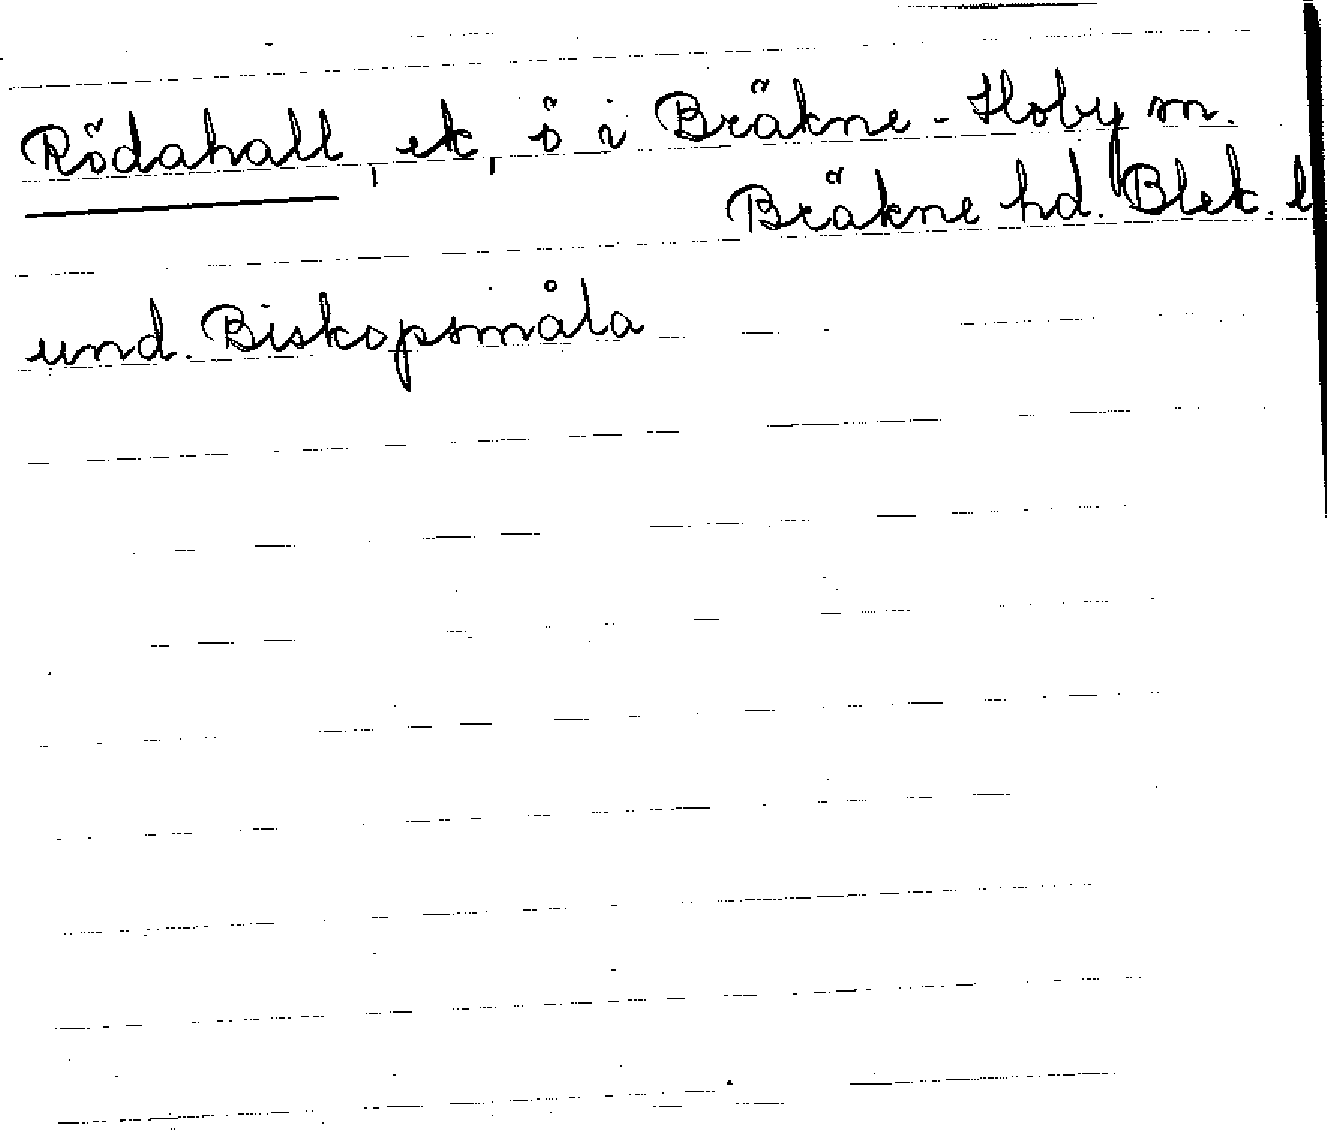 Rödahall, ek, ö i Bräkne-Hoby sn.
Bräkne hd. Blek. l
und. Biskopsmåla